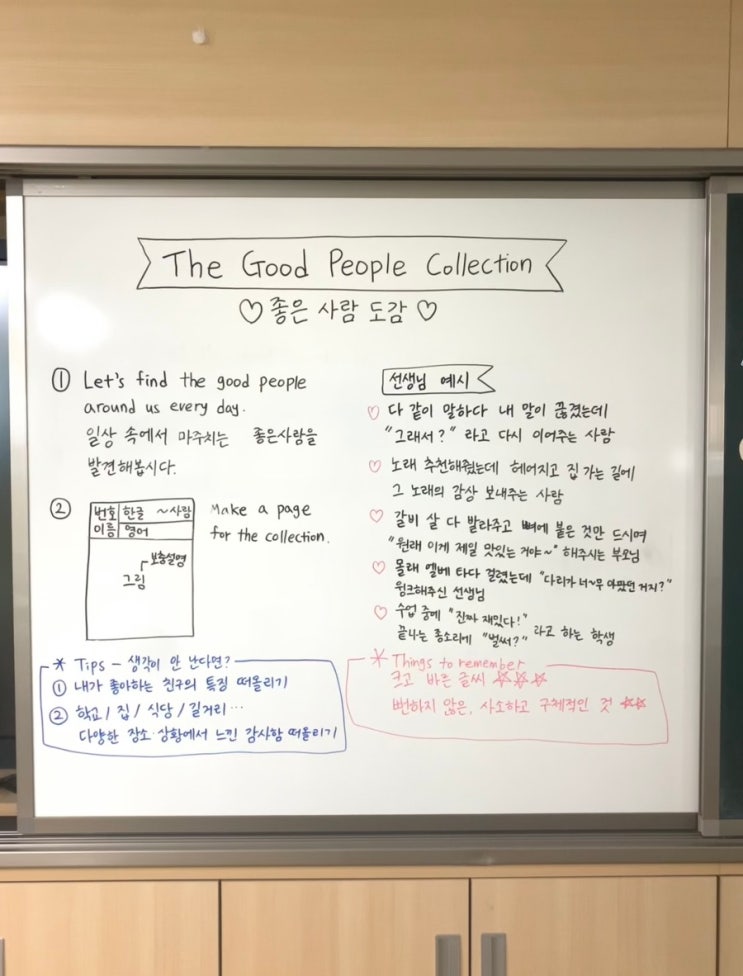 The Good People Collection
♡ 좋은 사람 도감 ♡
① Let's find the good people
around us every day.
일상 속에서 마주치는 좋은사람을
발견해봅시다.
② Make a page
for the collection.
번호 한글 ~사람
이름 영어
보충설명
그림
* Tips - 생각이 안 난다면?
① 내가 좋아하는 친구의 특징 떠올리기
② 학교 / 집 / 식당 / 길거리 ...
다양한 장소·상황에서 느낀 감사함 떠올리기
선생님 예시
♡ 다 같이 말하다 내 말이 끊겼는데
"그래서?" 라고 다시 이어주는 사람
♡ 노래 추천해줬는데 헤어지고 집 가는 길에
그 노래의 감상 보내주는 사람
♡ 갈비 살 다 발라주고 뼈에 붙은 것만 드시며
"원래 이게 제일 맛있는 거야~" 해주시는 부모님
♡ 몰래 엘베 타다 걸렸는데 "다리가 너~무 아팠던 거지?"
윙크해주신 선생님
♡ 수업 중에 "진짜 재밌다!"
끝나는 종소리에 "벌써?" 라고 하는 학생
* Things to remember
크고 바른 글씨 ☆☆☆
뻔하지 않은, 사소하고 구체적인 것 ☆☆